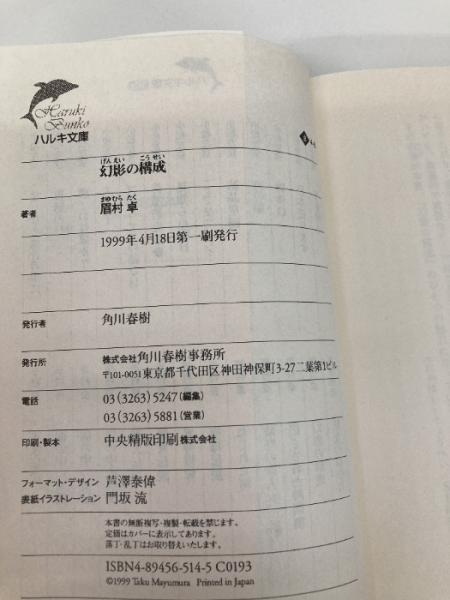 Haruki
Bunko
ハルキ文庫
げんえい こうせい
幻影の構成
著者
まゆむら たく
眉村 卓
1999年4月18日第一刷発行
発行者
角川春樹
発行所
株式会社角川春樹事務所
〒101-0051東京都千代田区神田神保町3-27二葉第1ビル
電話
03(3263)5247(編集)
03(3263)5881(営業)
印刷・製本
中央精版印刷株式会社
フォーマット・デザイン
芦澤泰偉
表紙イラストレーション
門坂 流
本書の無断複写・複製・転載を禁じます。
定価はカバーに表示してあります。
落丁・乱丁はお取り替えいたします。
ISBN4-89456-514-5 C0193
©1999 Taku Mayumura Printed in Japan